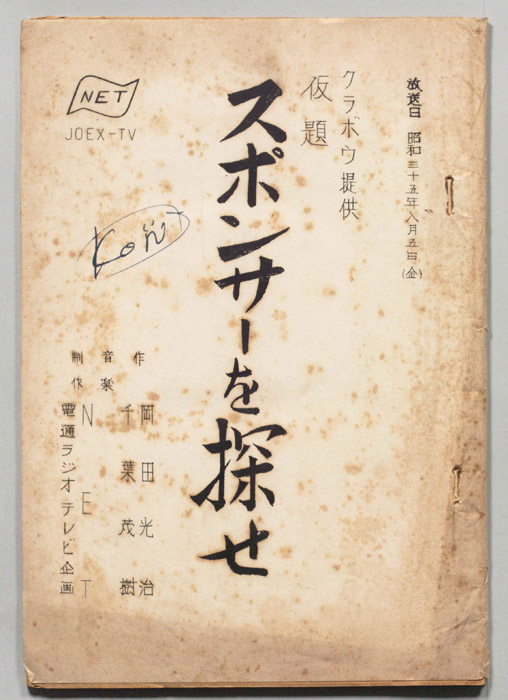 放送日 昭和三十五年八月五日(金)
クラボウ提供
仮題
スポンサーを探せ
NET
JOEX-TV
作 岡田光治
音楽 千葉茂樹
制作 NET
電通ラジオテレビ企画